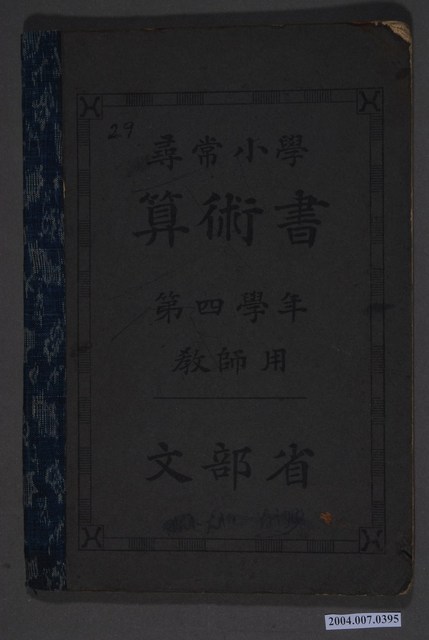 29
尋常小學
算術書
第四學年
敎師用
文部省
2004.007.0395